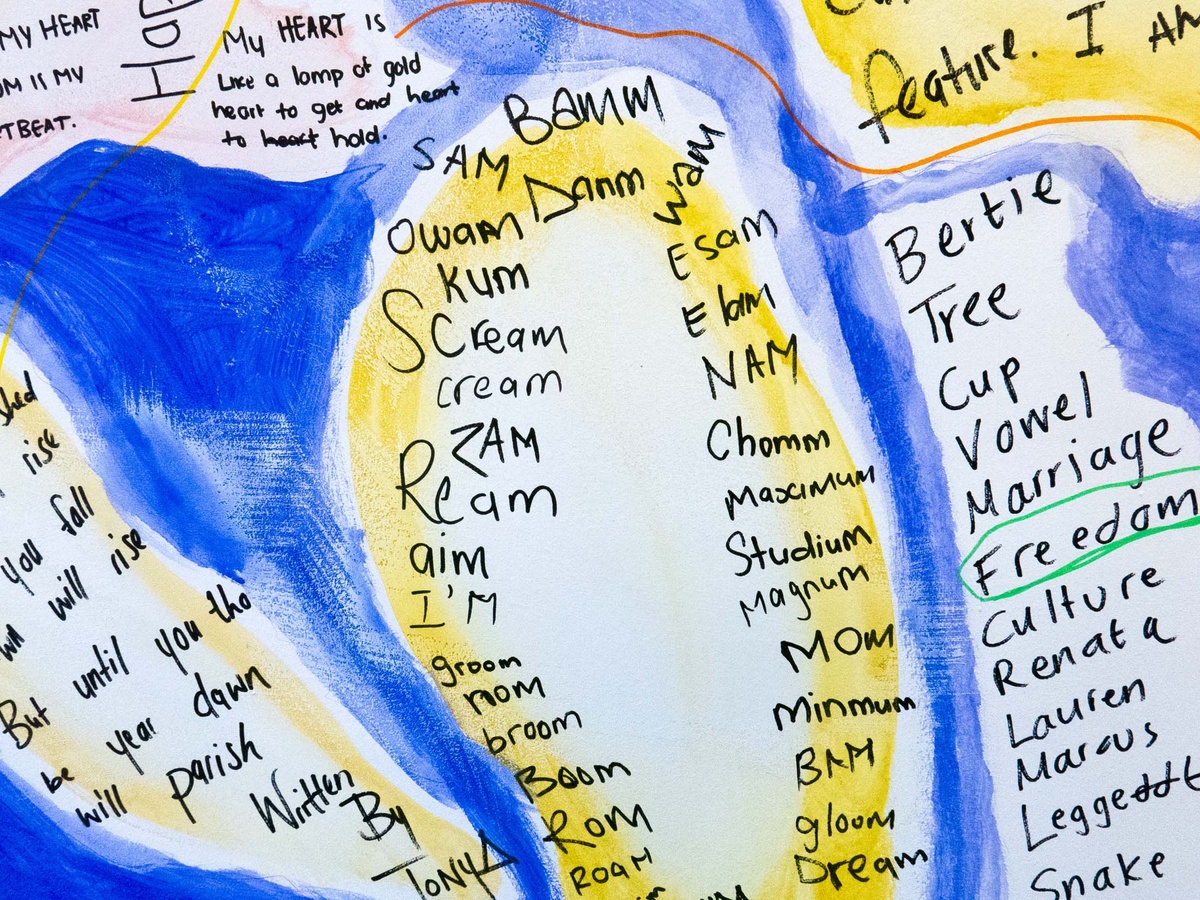 MY HEART
IS MY
TBEAT.
My HEART IS
Like a lomp of gold
heart to get and heart
to heart hold.
feature. I
shed
rise
you fall
will rise
But until you tho
be year dawn
will parish
Written
By
TONYA
BAMM
SAM
Danm
Wam
Owam
Kum
Scream
cream
ZAM
Ream
aim
I'M
groom
room
broom
Boom
Rom
ROAM
Esam
Elam
NAM
Chomm
Maximum
Studium
Magnum
MOM
Minmum
BAM
gloom
Dream
Bertie
Tree
Cup
Vowel
Marriage
Freedom
Culture
Renata
Lauren
Marcus
Snake